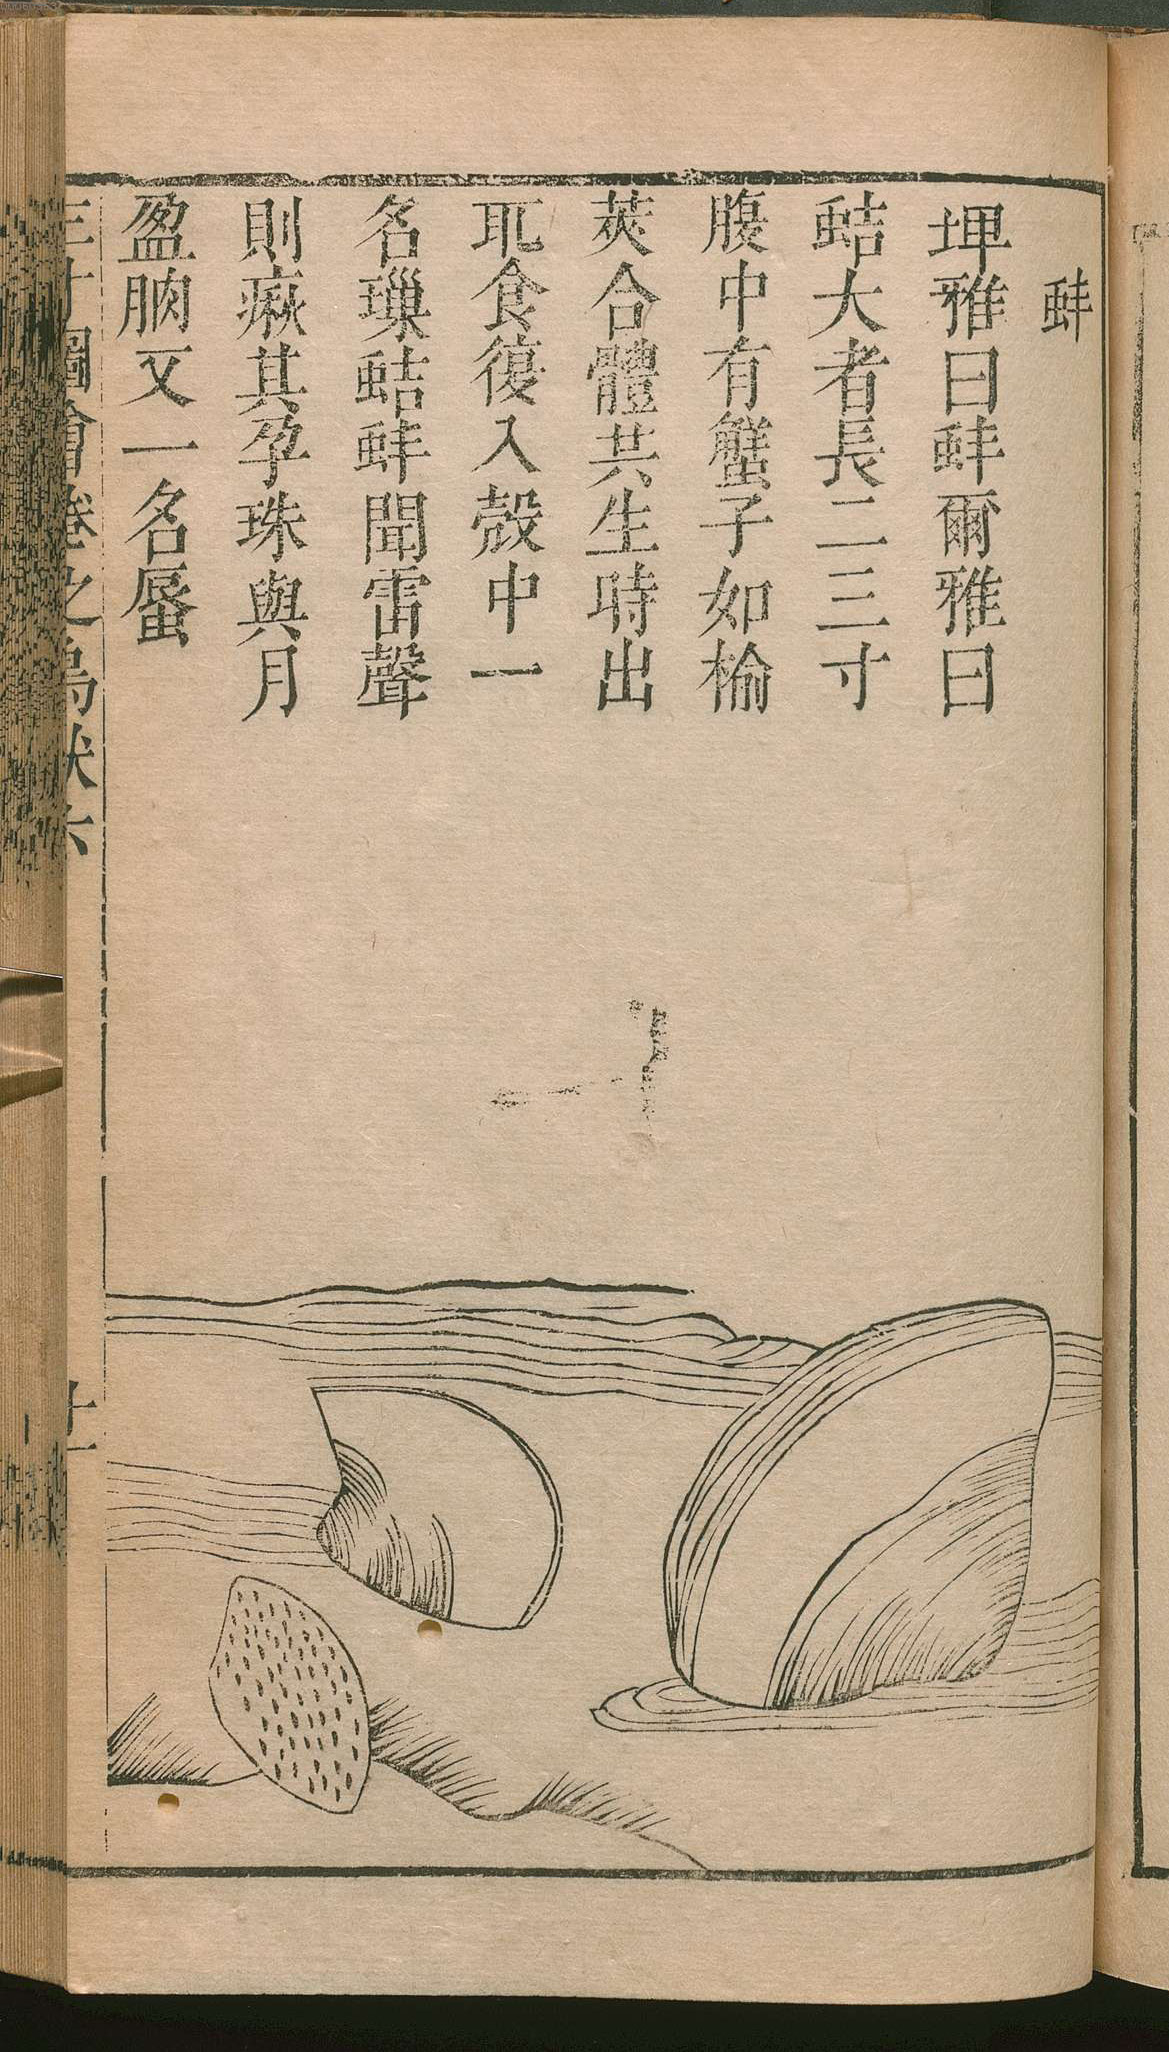 蚌
埤雅曰蚌爾雅曰
蛣大者長二三寸
腹中有蟹子如榆
莢合體共生時出
取食復入殼中一
名璅蛣蚌聞雷聲
則㾭其孕珠與月
盈朒又一名蜃
三才圖會卷之鳥獸六
十一